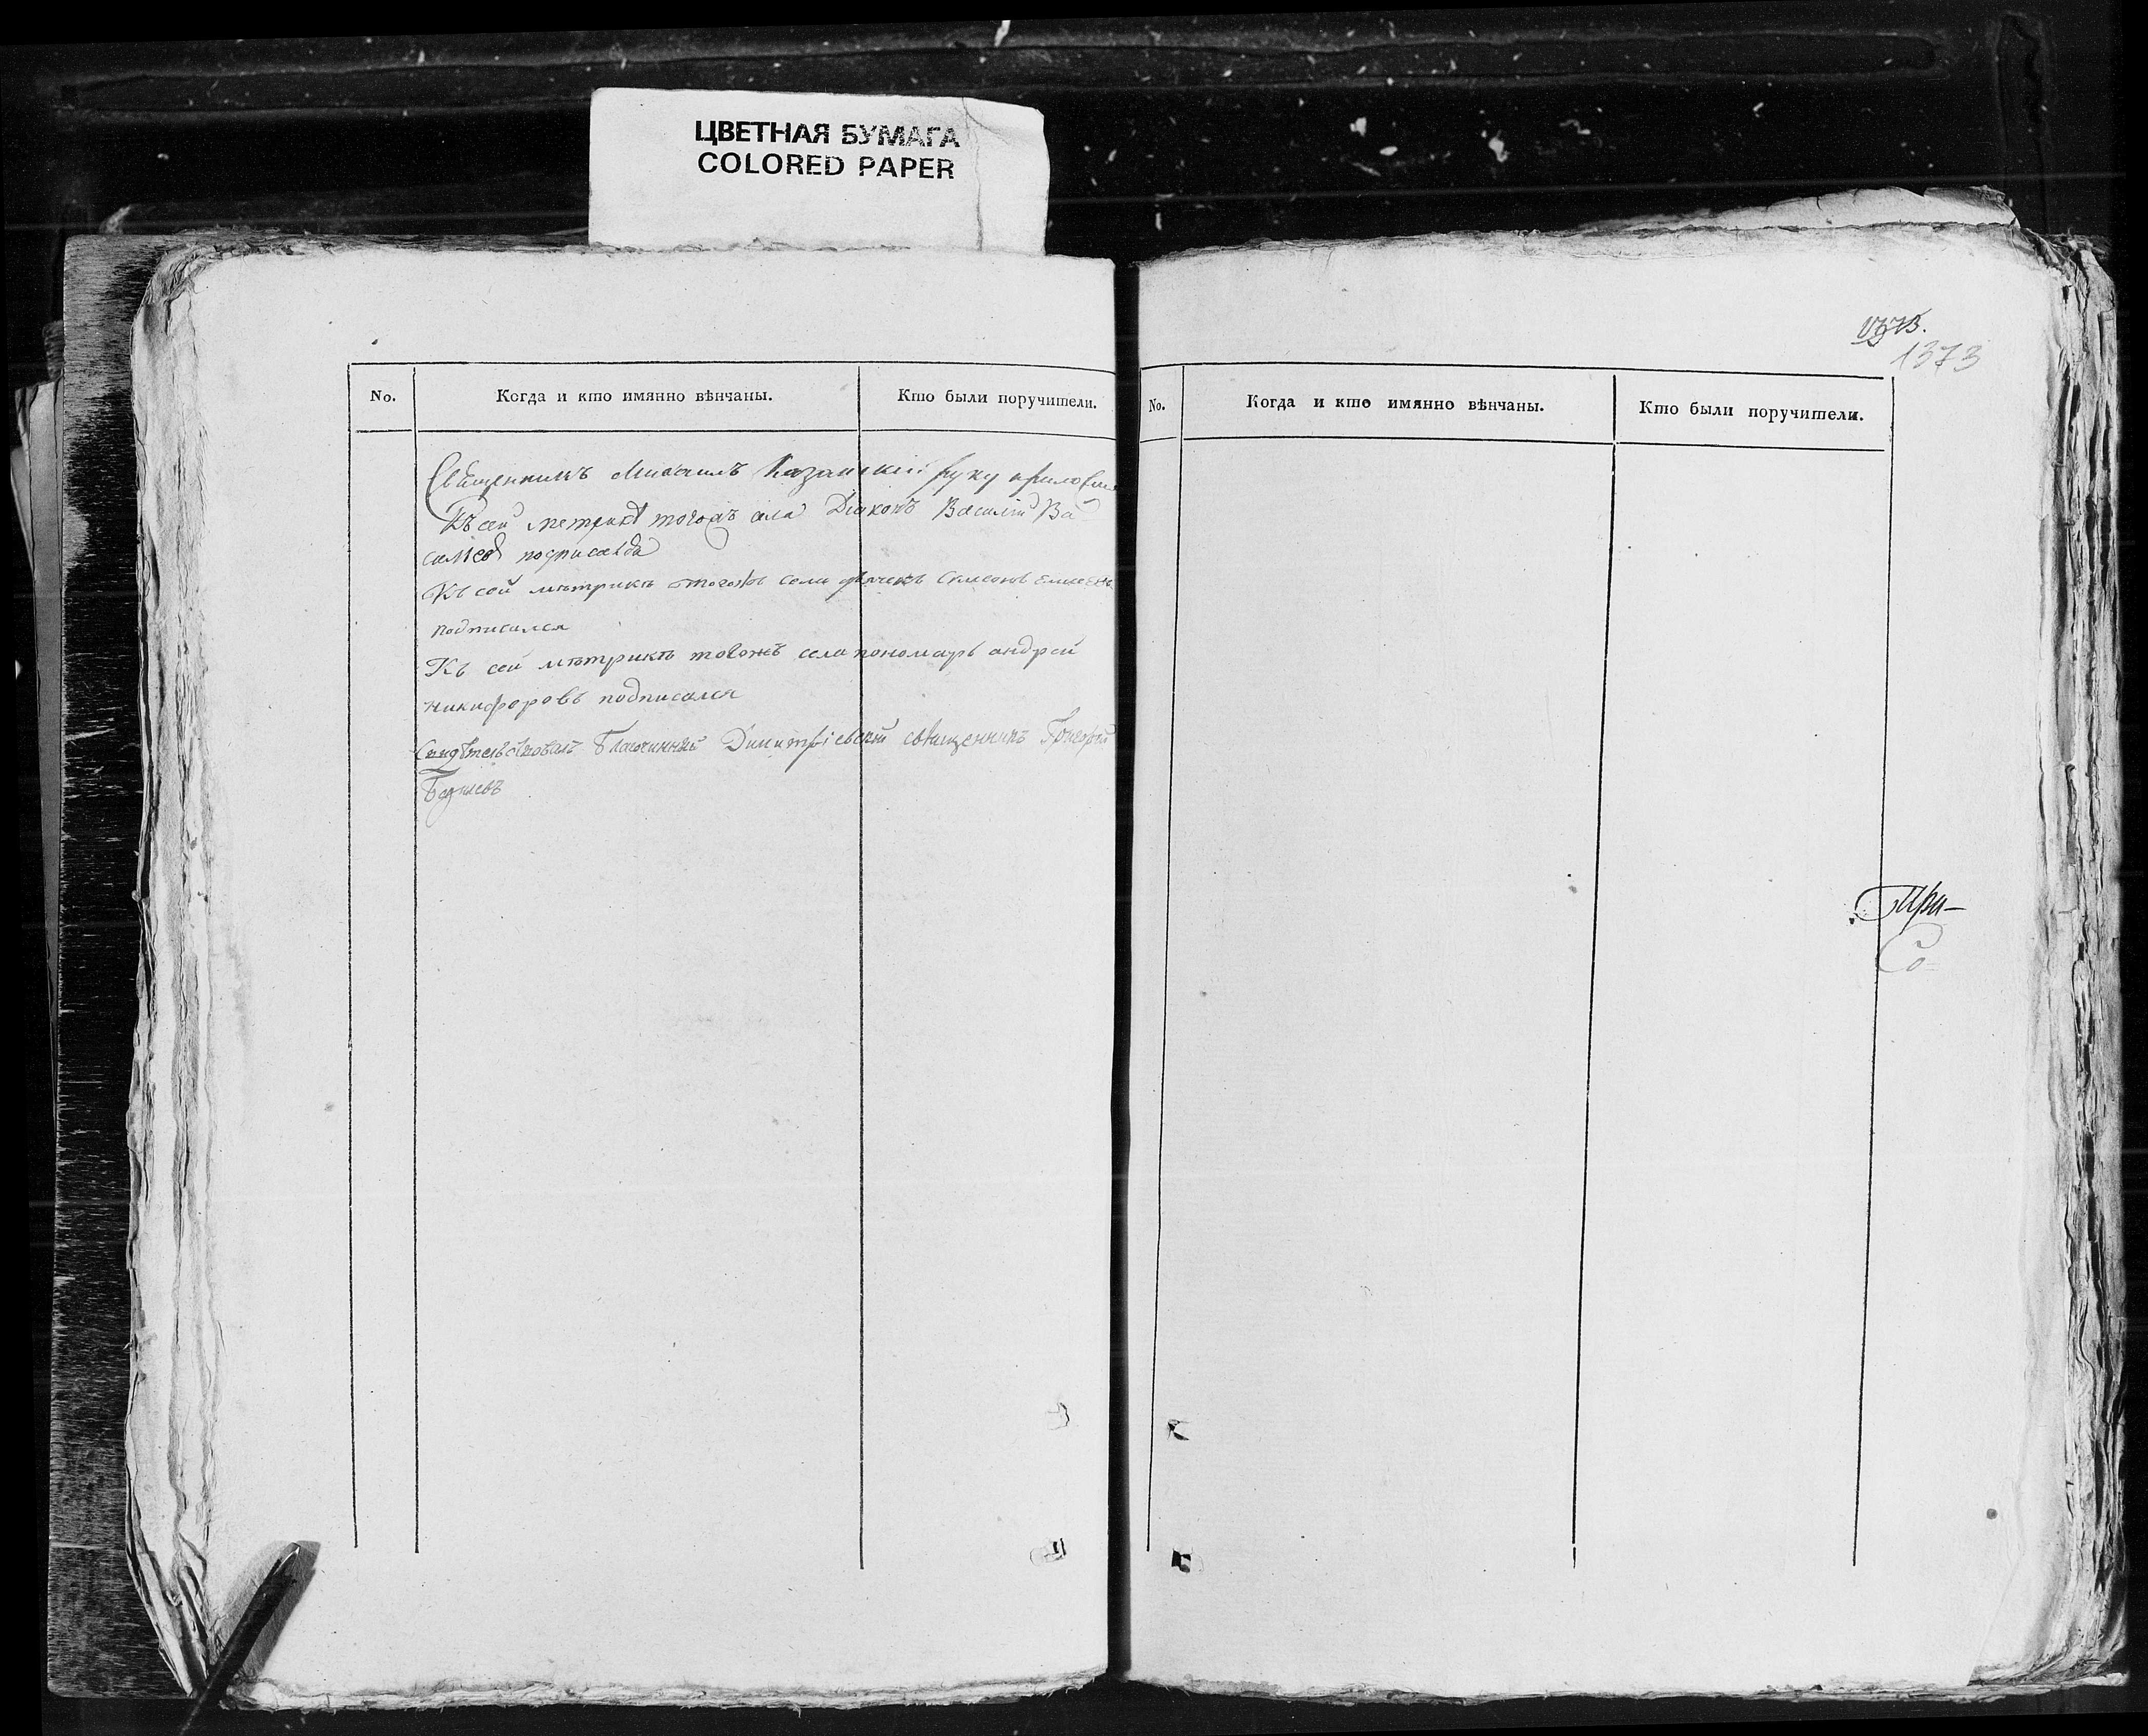 ЦВЕТНАЯ БУМАГА
COLORED PAPER
1373
No.
Когда и кто имянно вѣнчаны.
Кто были поручители.
Священникъ Михаилъ Казанскій руку приложил
Къ сей метрикѣ тогожъ села Діаконъ Василій Ва
сильевъ подписался
Къ сей метрикѣ тогожъ села дьячекъ Симеонъ
подписался
Къ сей мѣтрикѣ товожъ села пономарь андрей
никифоровъ подписался
Свидѣтельствовалъ Благочинный Димитріевскій священникъ Григорій
No.
Когда и кто имянно вѣнчаны.
Кто были поручители.
При-
Со-